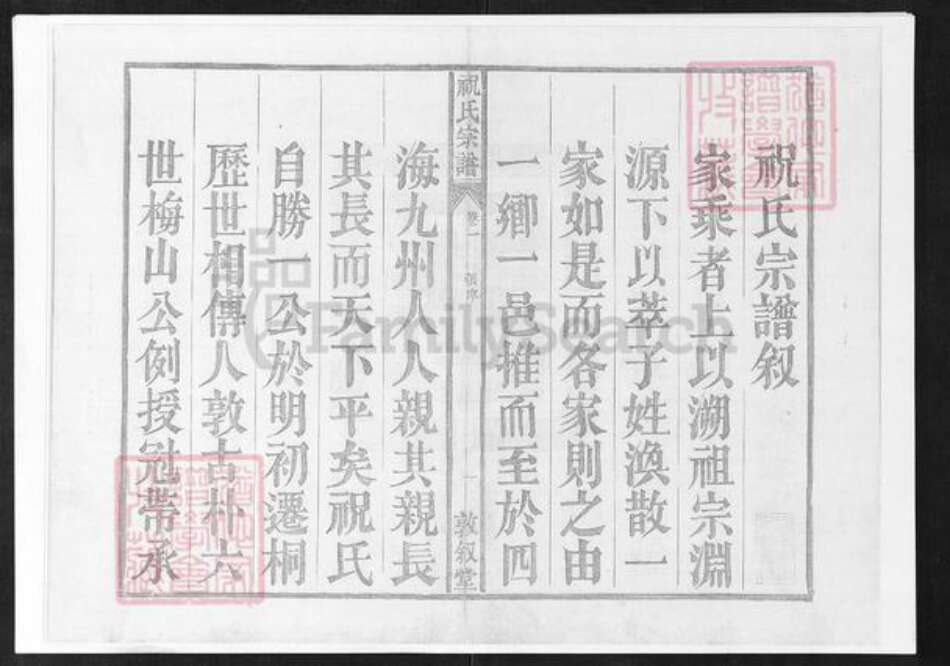 祝氏宗譜叙
家乘者上以溯祖宗淵
源下以萃子姓渙散一
家如是而各家則之由
一鄉一邑推而至於四
祝氏宗譜
卷一
一
敦叙堂
海九州人人親其親長
其長而天下平矣祝氏
自勝一公於明初遷桐
歷世相傳人敦古朴六
世梅山公例授冠帶承
FamilySearch